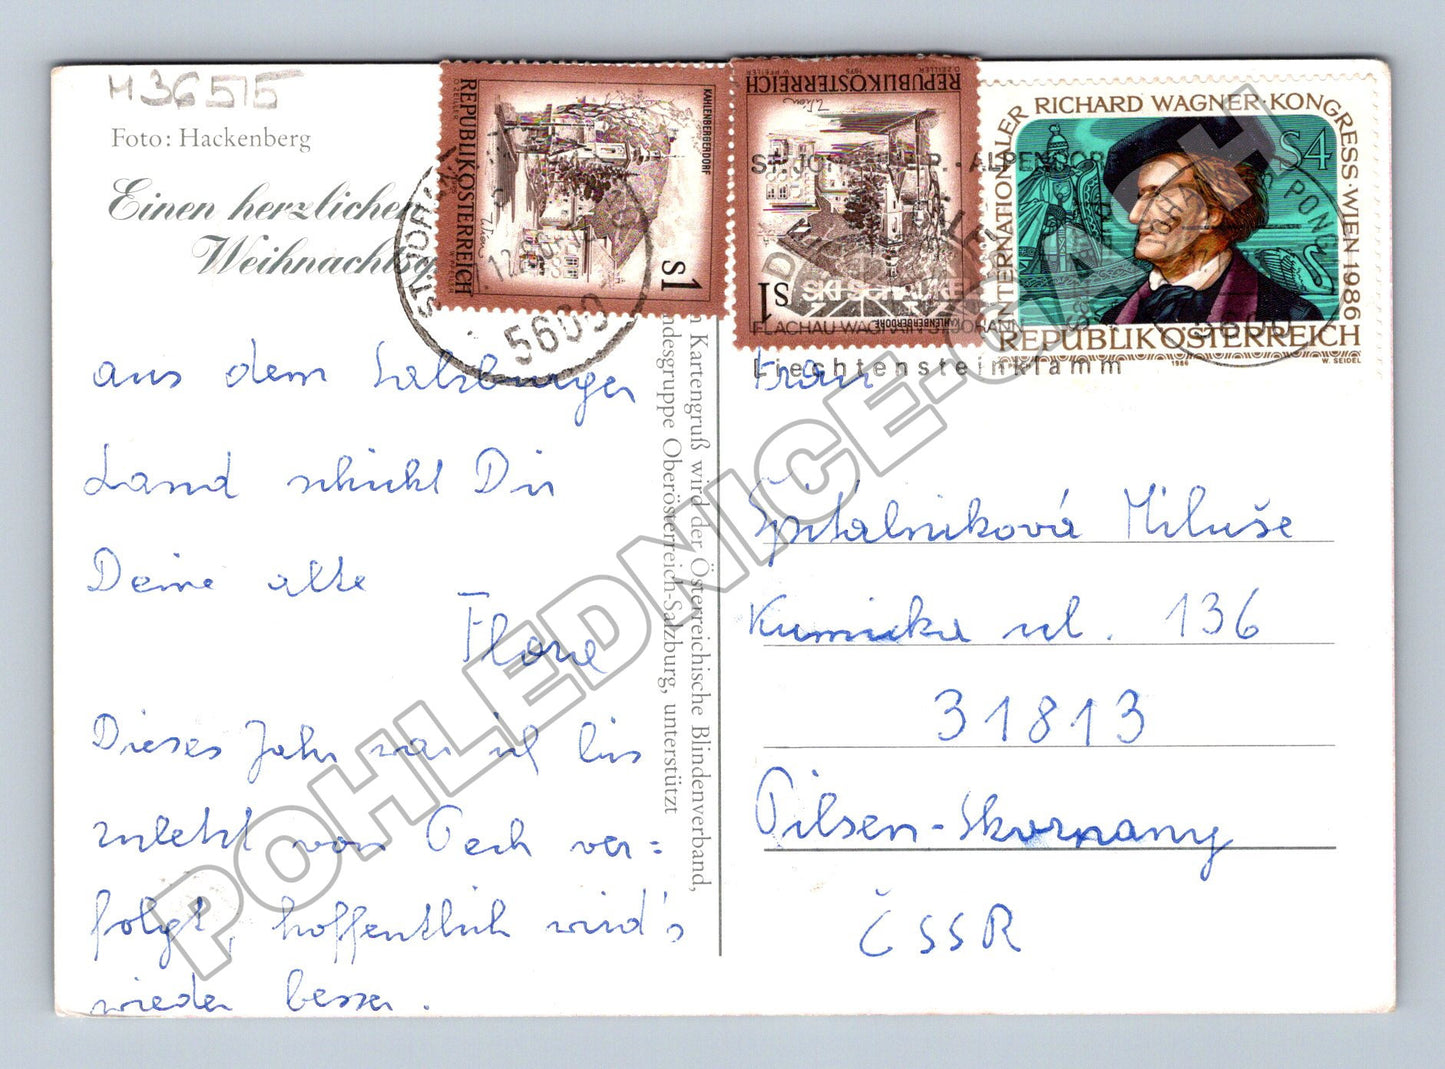 M36515
Foto: Hackenberg
Einen herzlichen
aus dem Salzburger
Land schickt Dir
Deine alte
Flore
Dieses Jahr war ich bis
zuletzt von Pech ver=
folgt, hoffentlich wird's
wieder besser.
Kartengruß wird der Österreichische Blindenverband,
ndesgruppe Oberösterreich-Salzburg, unterstützt
REPUBLIK ÖSTERREICH
KAHLENBERGERDORF
S1
5600
REPUBLIK ÖSTERREICH
KAHLENBERGERDORF
S1
SKI-SCHAUKEL
FLACHAU-WAGRAIN-ST.JOHANN
Liechtensteinklamm
INTERNATIONALER RICHARD WAGNER·KONGRESS·WIEN 1986
S4
REPUBLIK ÖSTERREICH
1986
W. SEIDEL
Frau
Spitalniková Miluše
ul. 136
31813
Pilsen-Skvrnany
ČSSR
POHLEDNICE-CACH